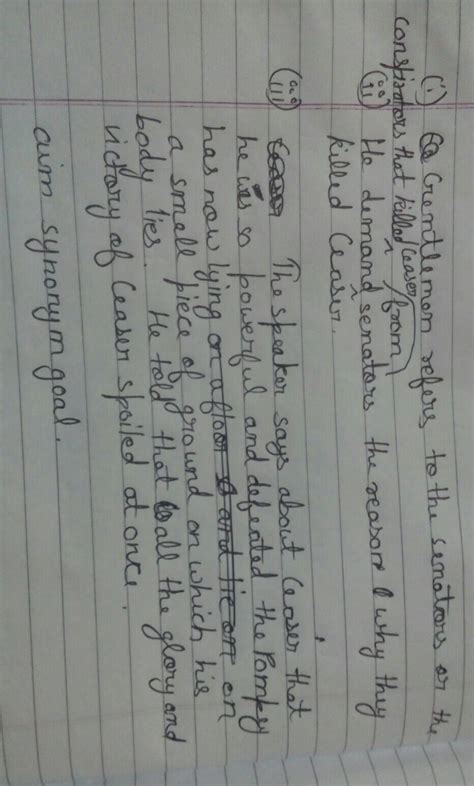 (i) Gentleman refers to the senators or the
conspirators that killed Ceaser
(ii) He demand from senators the reason why they
killed Ceaser.
(iii) The speaker says about Ceaser that
he was so powerful and defeated the Pompy
has now lying on a floor and lie one on
a small piece of ground on which his
body lies. He told that all the glory and
victory of Ceaser spoiled at once.
aim synonym goal.